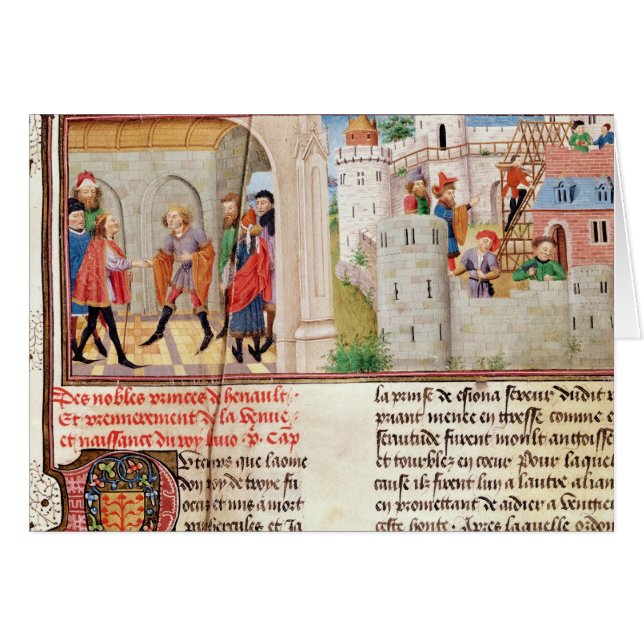 Des nobles princes de henault.
Et premierement de la venue
et naissance du roy bavo. p. Cap
U temps que laome
don roy de troye fu
ocas et mis a mort
par hercules et Ja
la prinse de esiona sereur dudit p
priant menee en tresse comme e
seruitude furent moult anttoisse
et tourblez en coeur Pour laquel
cause ilz firent luy a lautre alian
en promettant de aidier a ventgier
ceste honte. Apres laquelle ordon